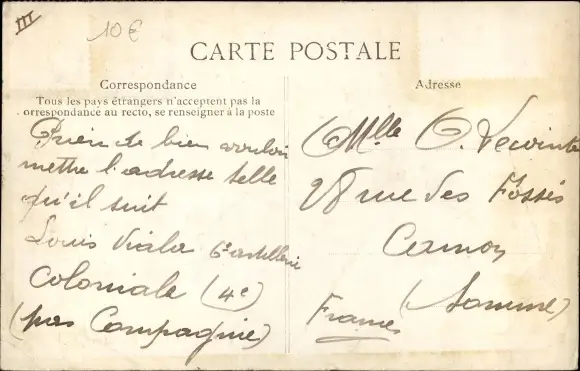 III
10€
CARTE POSTALE
Correspondance
Tous les pays étrangers n'acceptent pas la
orrespondance au recto, se renseigner à la poste
Prière de bien vouloir
mettre l'adresse telle
qu'il suit
Louis Viala 6e artillerie
Coloniale (4e)
(pas Compagnie)
Adresse
Mlle O. Lewint
28 rue des Fossés
Camon
(Somme)
France